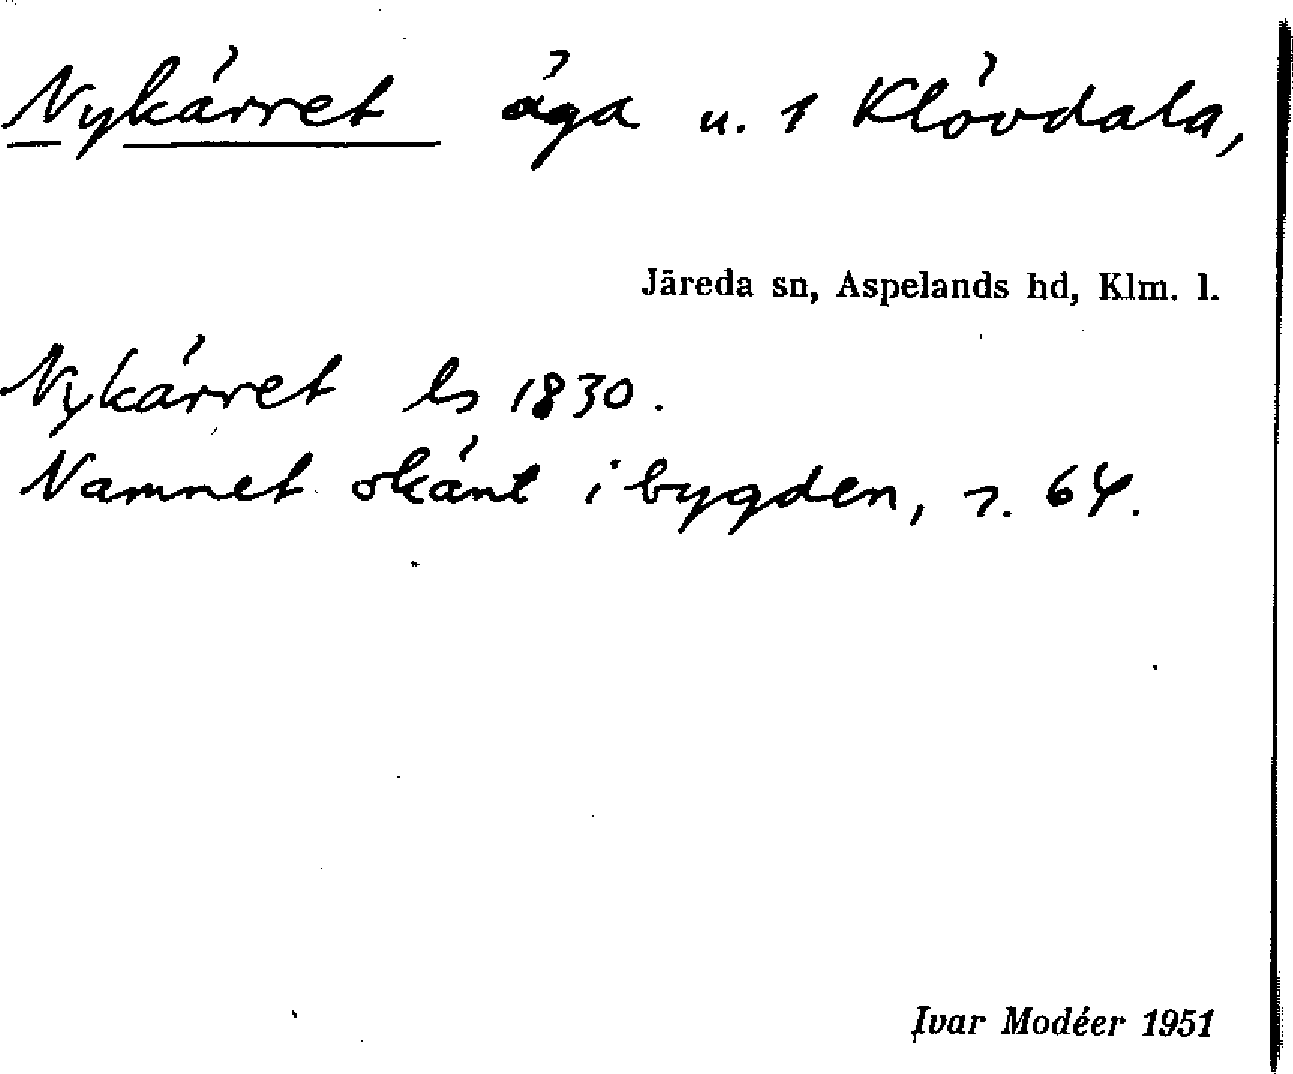 Nykärret äga u. 1 Klövdala,
Järeda sn, Aspelands hd, Klm. l.
Nykärret ls 1830.
Namnet okänt i bygden, r. 64.
Ivar Modéer 1951